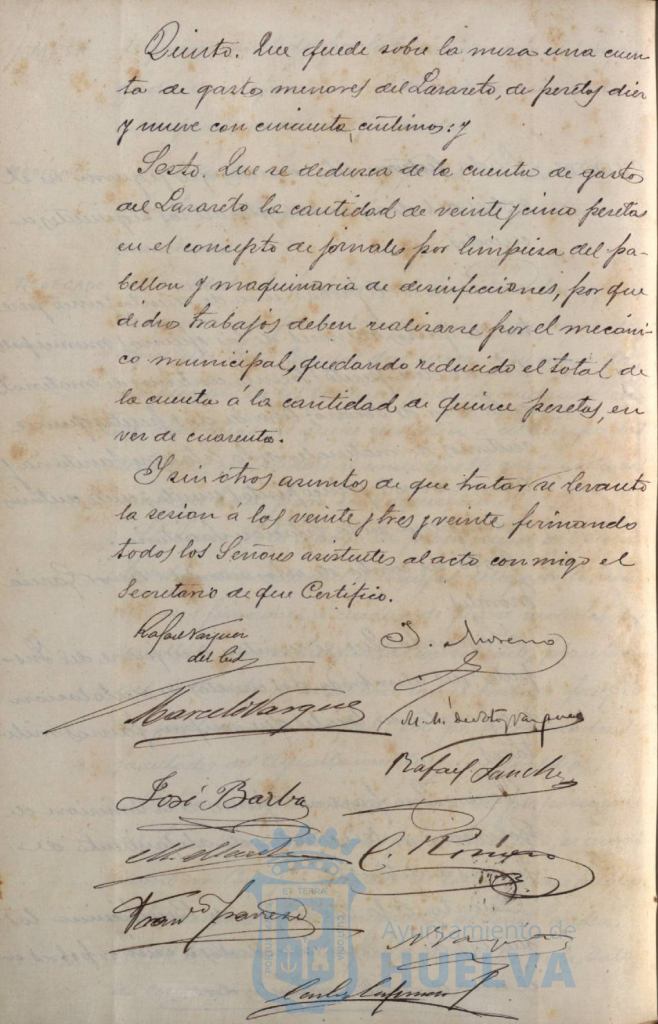 Quinto. Que quede sobre la mesa una cuen-
ta de gastos menores del Lazareto, de pesetas diez
y nueve con cincuenta céntimos: y
Sesto. Que se deduzca de la cuenta de gastos
del Lazareto la cantidad de veinte y cinco pesetas
en el concepto de jornales por limpieza del pa-
bellon y maquinaria de desinfecciones, por que
dichos trabajos deben realizarse por el mecáni-
co municipal, quedando reducido el total de
la cuenta á la cantidad de quince pesetas, en
vez de cuarenta.
Y sin otros asuntos de que tratar se levantó
la sesion á las veinte y tres y veinte firmando
todos los Señores asistentes al acto conmigo el
Secretario de que Certifico.
Rafael Vazquez
del Cid
J. Moreno
Marcelo Vazquez
M. Mª
Rafael Sanchez
José Barba
M.
C. Romero
ET TERRÆ
PORTUS MARIS
CUSTODIA
Ayuntamiento de
HUELVA
Carlos